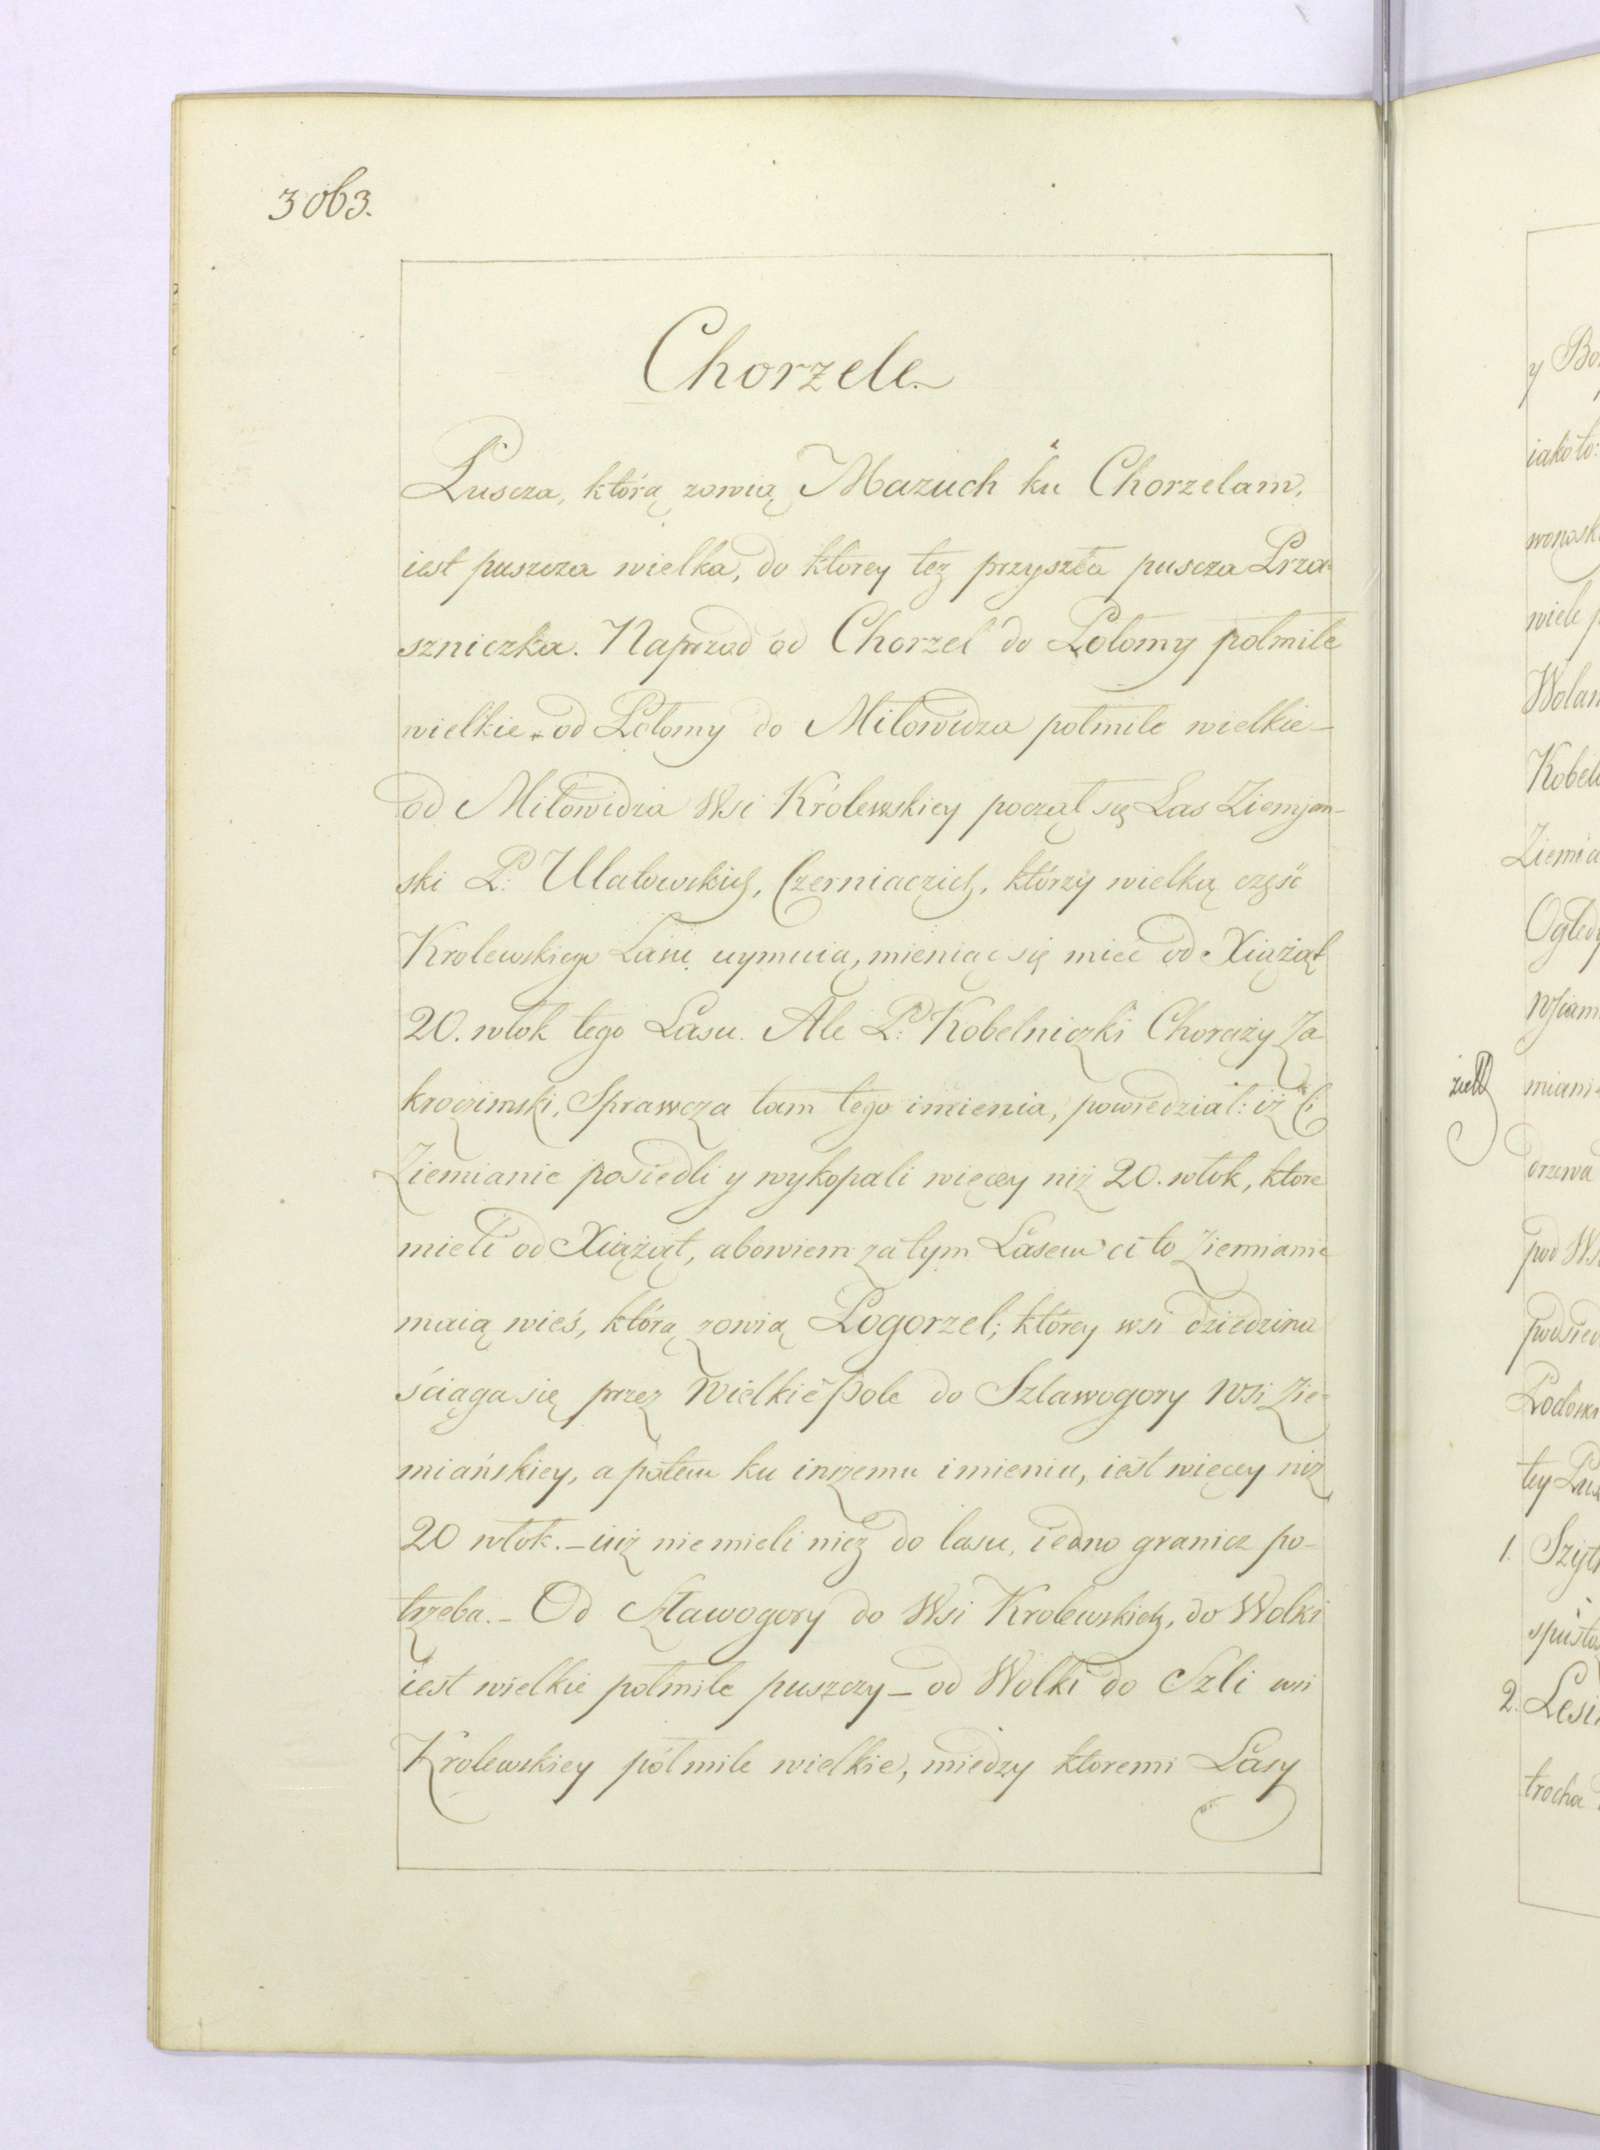 3063.
Chorzele
Puscza, którą zowią Mazuch ku Chorzelam,
iest puszcza wielka, do ktorey tez przyszła puscza Prza-
szniczka. Naprzod od Chorzel do Połomy połmile
wielkie – od Połomy do Miłowidza połmile wielkie –
od Miłowidza Wsi Królewskiey począł się Las Ziemjan-
ski P: Ulatowskich, Czerniaczich, którzy wielką część
Krolewskiego Lasu uymuią, mieniąc się mieć od Xiążąt
20. włok tego Lasu. Ale P: Kobelniczki Chorąży Za
kroczimski, Sprawcza tam tego imienia, powiedział: iż ci
Ziemianie posiedli y wykopali więcey niż 20. włok, ktore
mieli od Xiążąt, abowiem za tym Lasem ci to Ziemianie
maią wieś, którą zowią Pogorzel; którey wsi dziedzina
ściąga się przez Wielkie pole do Szlawogory Wsi Zie-
miańskiey, a potem ku inszemu imieniu, iest więcey niż
20 włok. – iuż niemieli nicz do lasu, iedno granicz po-
trzeba. – Od Sławogory do Wsi Krolewskich, do Wolki
iest wielkie połmile puszczy – od Wolki do Szli wsi
Krolewskiey pólmile wielkie, miedzy ktoremi Lasy
y
iako to:
wiele
Ziemia
miani
drzewa
pod
1.
2.
trocha